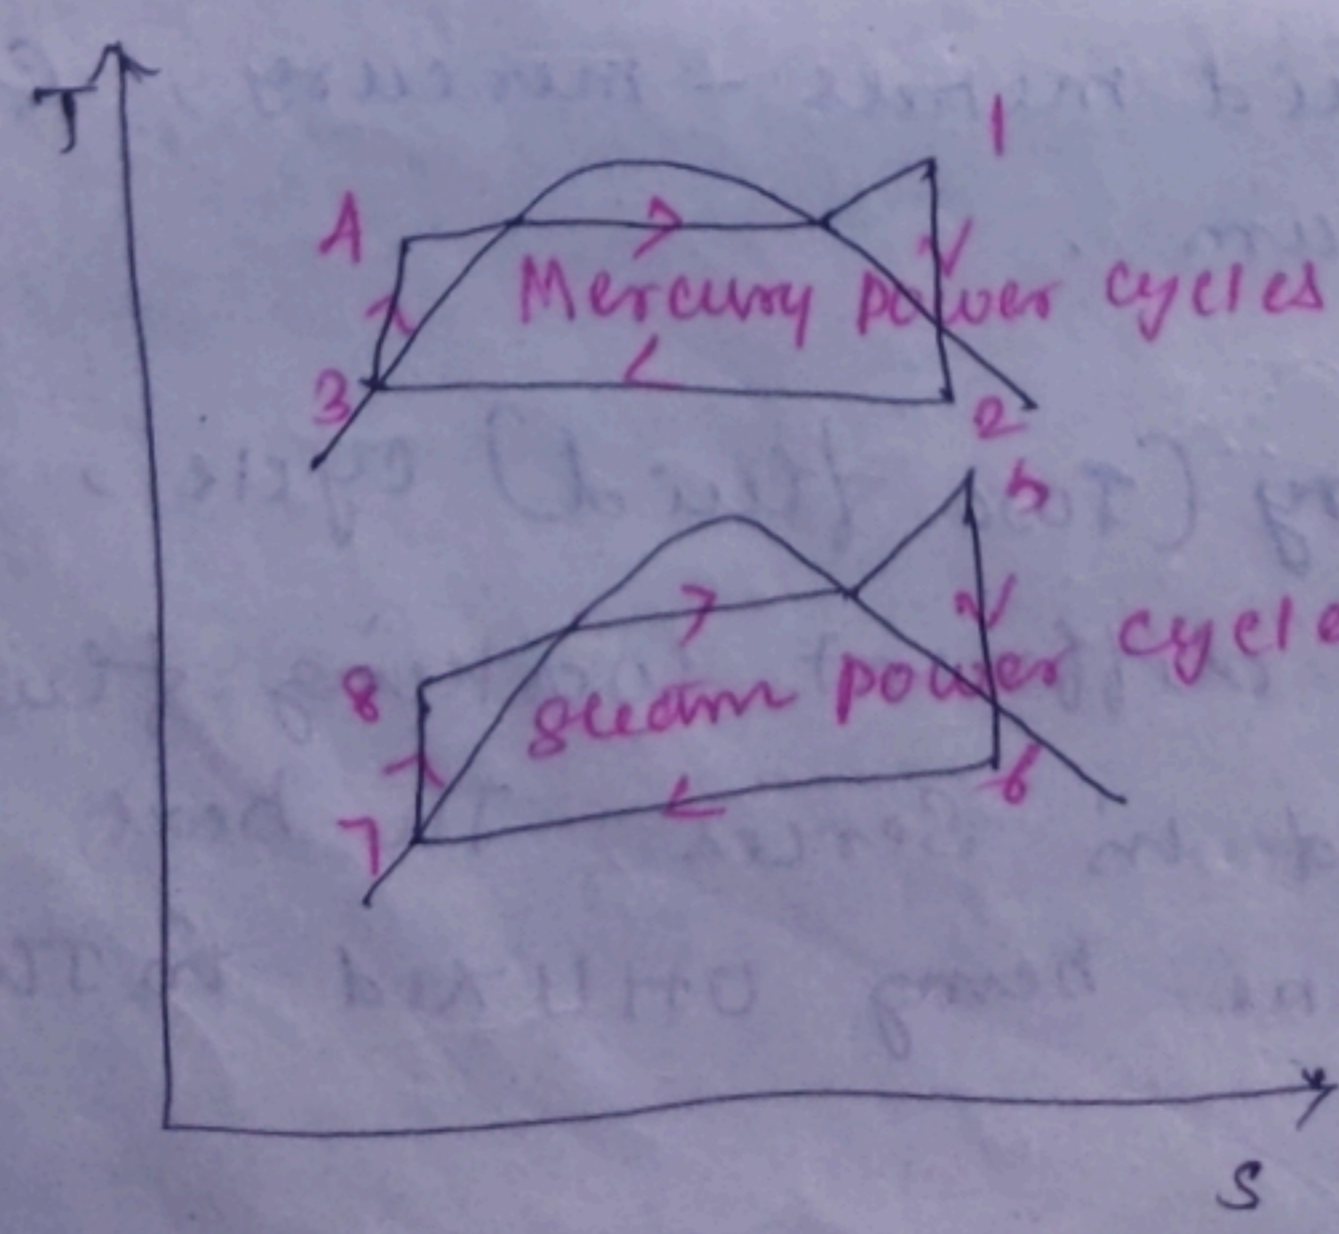 T
1
4
Mercury power cycles
3
2
5
8
steam power cycle
6
7
S